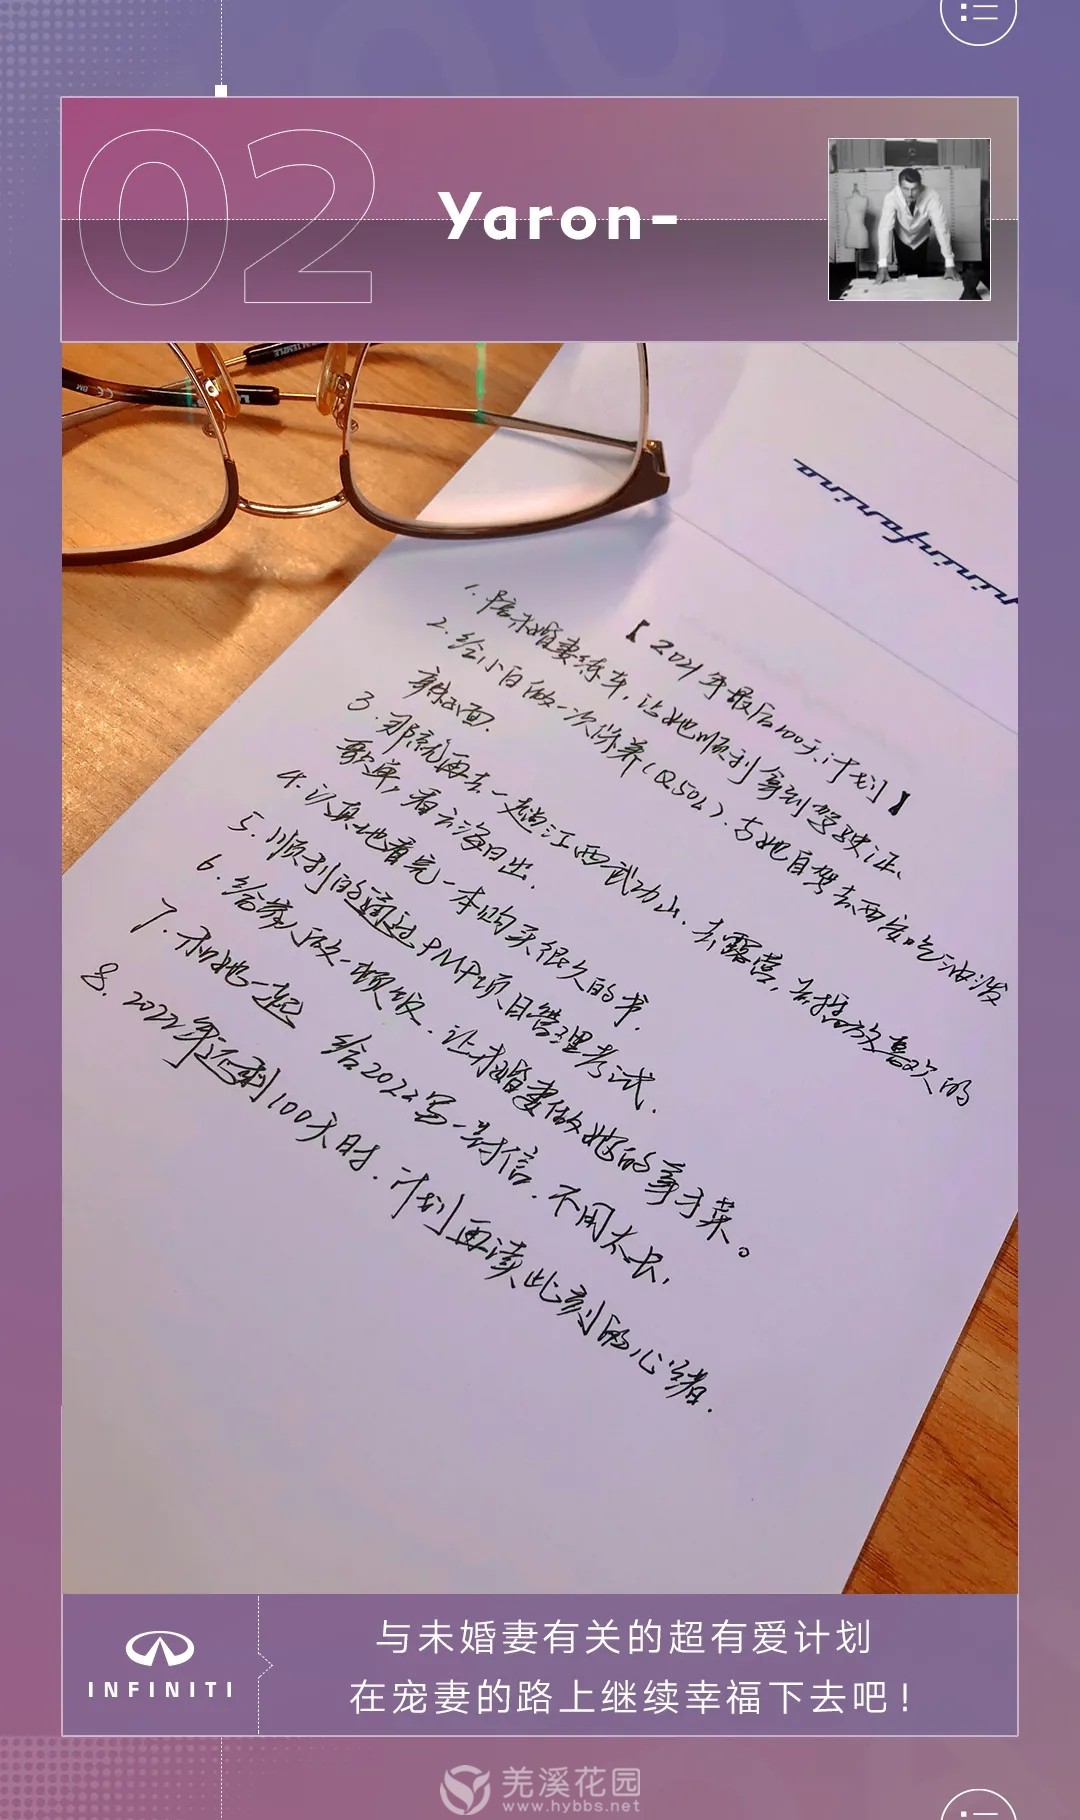 02
Yaron-
pininfarina
【2021年最后100天计划】
1. 陪未婚妻练车,让她顺利拿到驾驶证、
2. 给小白做一次保养(Q50L).与她自驾去西安吃油泼
辣子面.
3. 那就再去一趟江西武功山.去露营,去播放喜欢的
歌单,看云海日出.
4. 认真地看完一本购买很久的书.
5. 顺利的通过PMP项目管理考试.
6. 给家人做一顿饭.让未婚妻做她的拿手菜。
7. 和她一起 给2022写一封信.不用太长,
8. 2022年还剩100天时.计划再读此刻的心绪.
INFINITI
与未婚妻有关的超有爱计划
在宠妻的路上继续幸福下去吧!
羌溪花园
www.hybbs.net